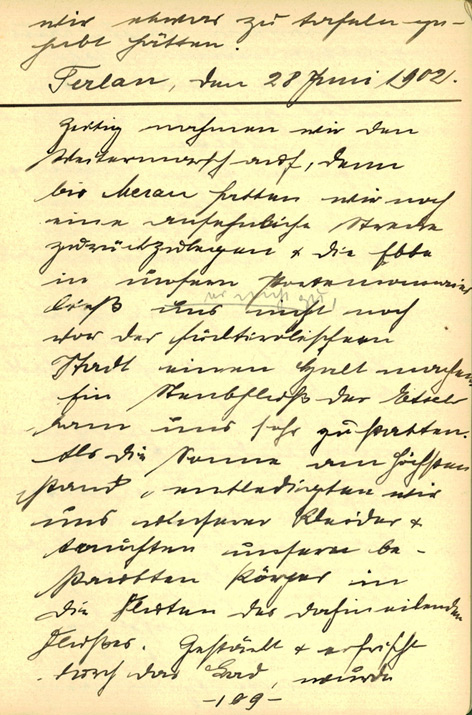 wir etwas zu tafeln ge-
habt hätten.
Terlan, den 28 Juni 1902.
Zeitig nahmen wir den
Weitermarsch auf, denn
bis Meran hatten wir noch
eine ansehnliche Strecke
zurückzulegen & die Ebbe
in unsern Portemonnaies
ließ uns nicht noch
vor der südtirolischen
Stadt einen Halt machen.
Ein Nebenfluß der Etsch
kam uns sehr zu statten.
Als die Sonne am höchsten
stand, entledigten wir
uns unserer Kleider &
tauchten unsere be-
staubten Körper in
die Fluten des dahineilenden
Flußes. Gestärkt & erfrischt
durch das Bad, wurde
-109-